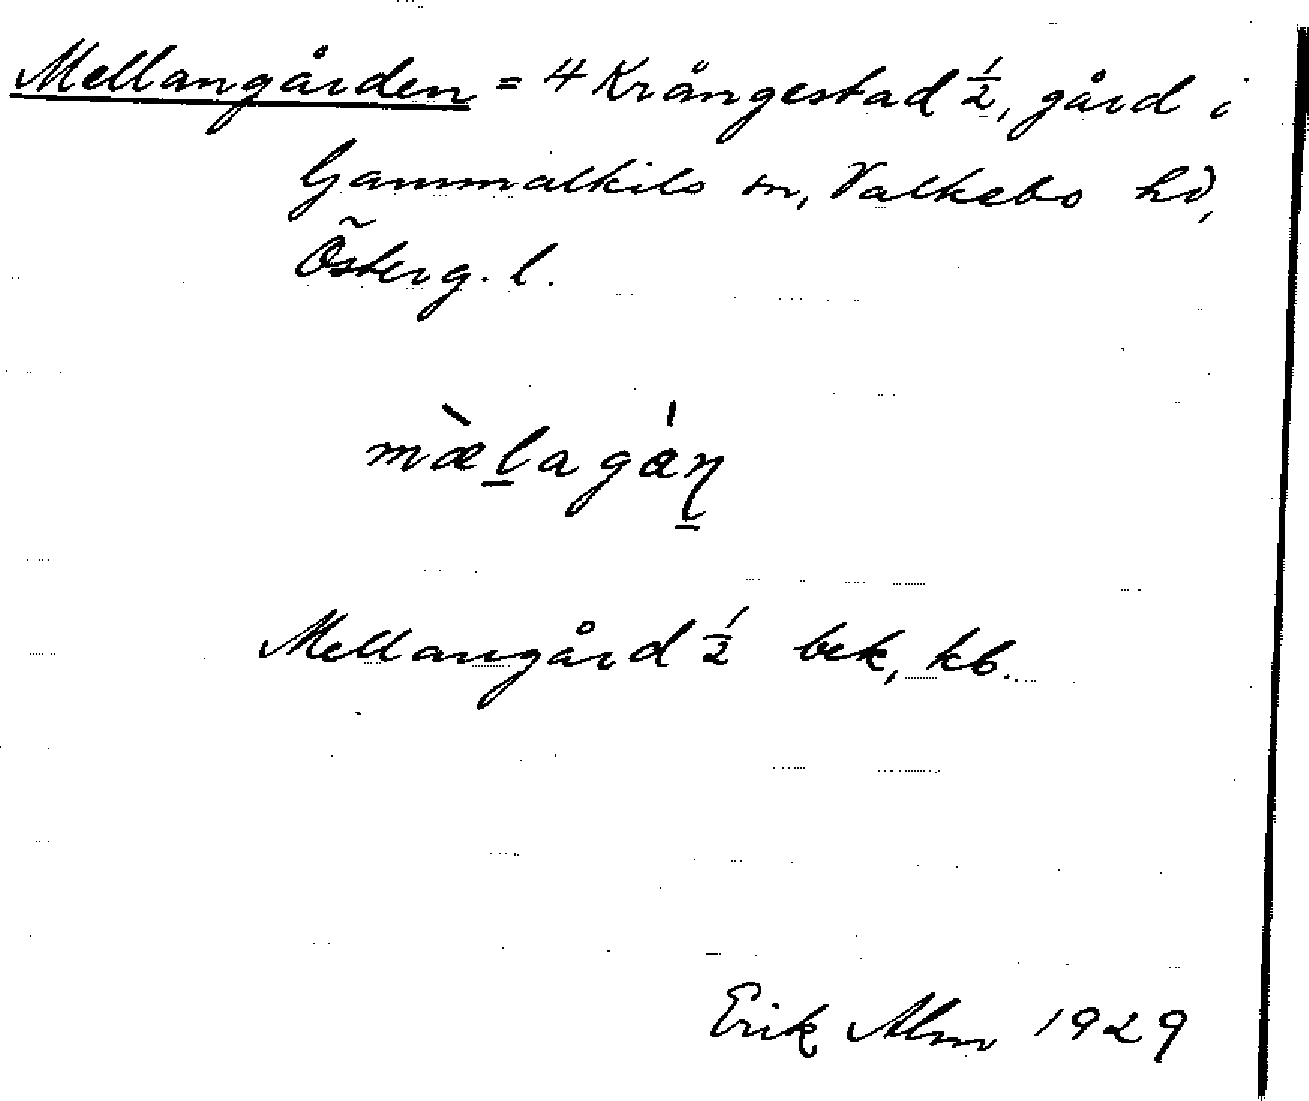 Mellangården = 4 Krångestad ½, gård i
Gammalkils sn, Valkebo hd,
Österg. l.
mæ̀lagán
Mellangård ½ bek, kb.
Erik Alm 1929